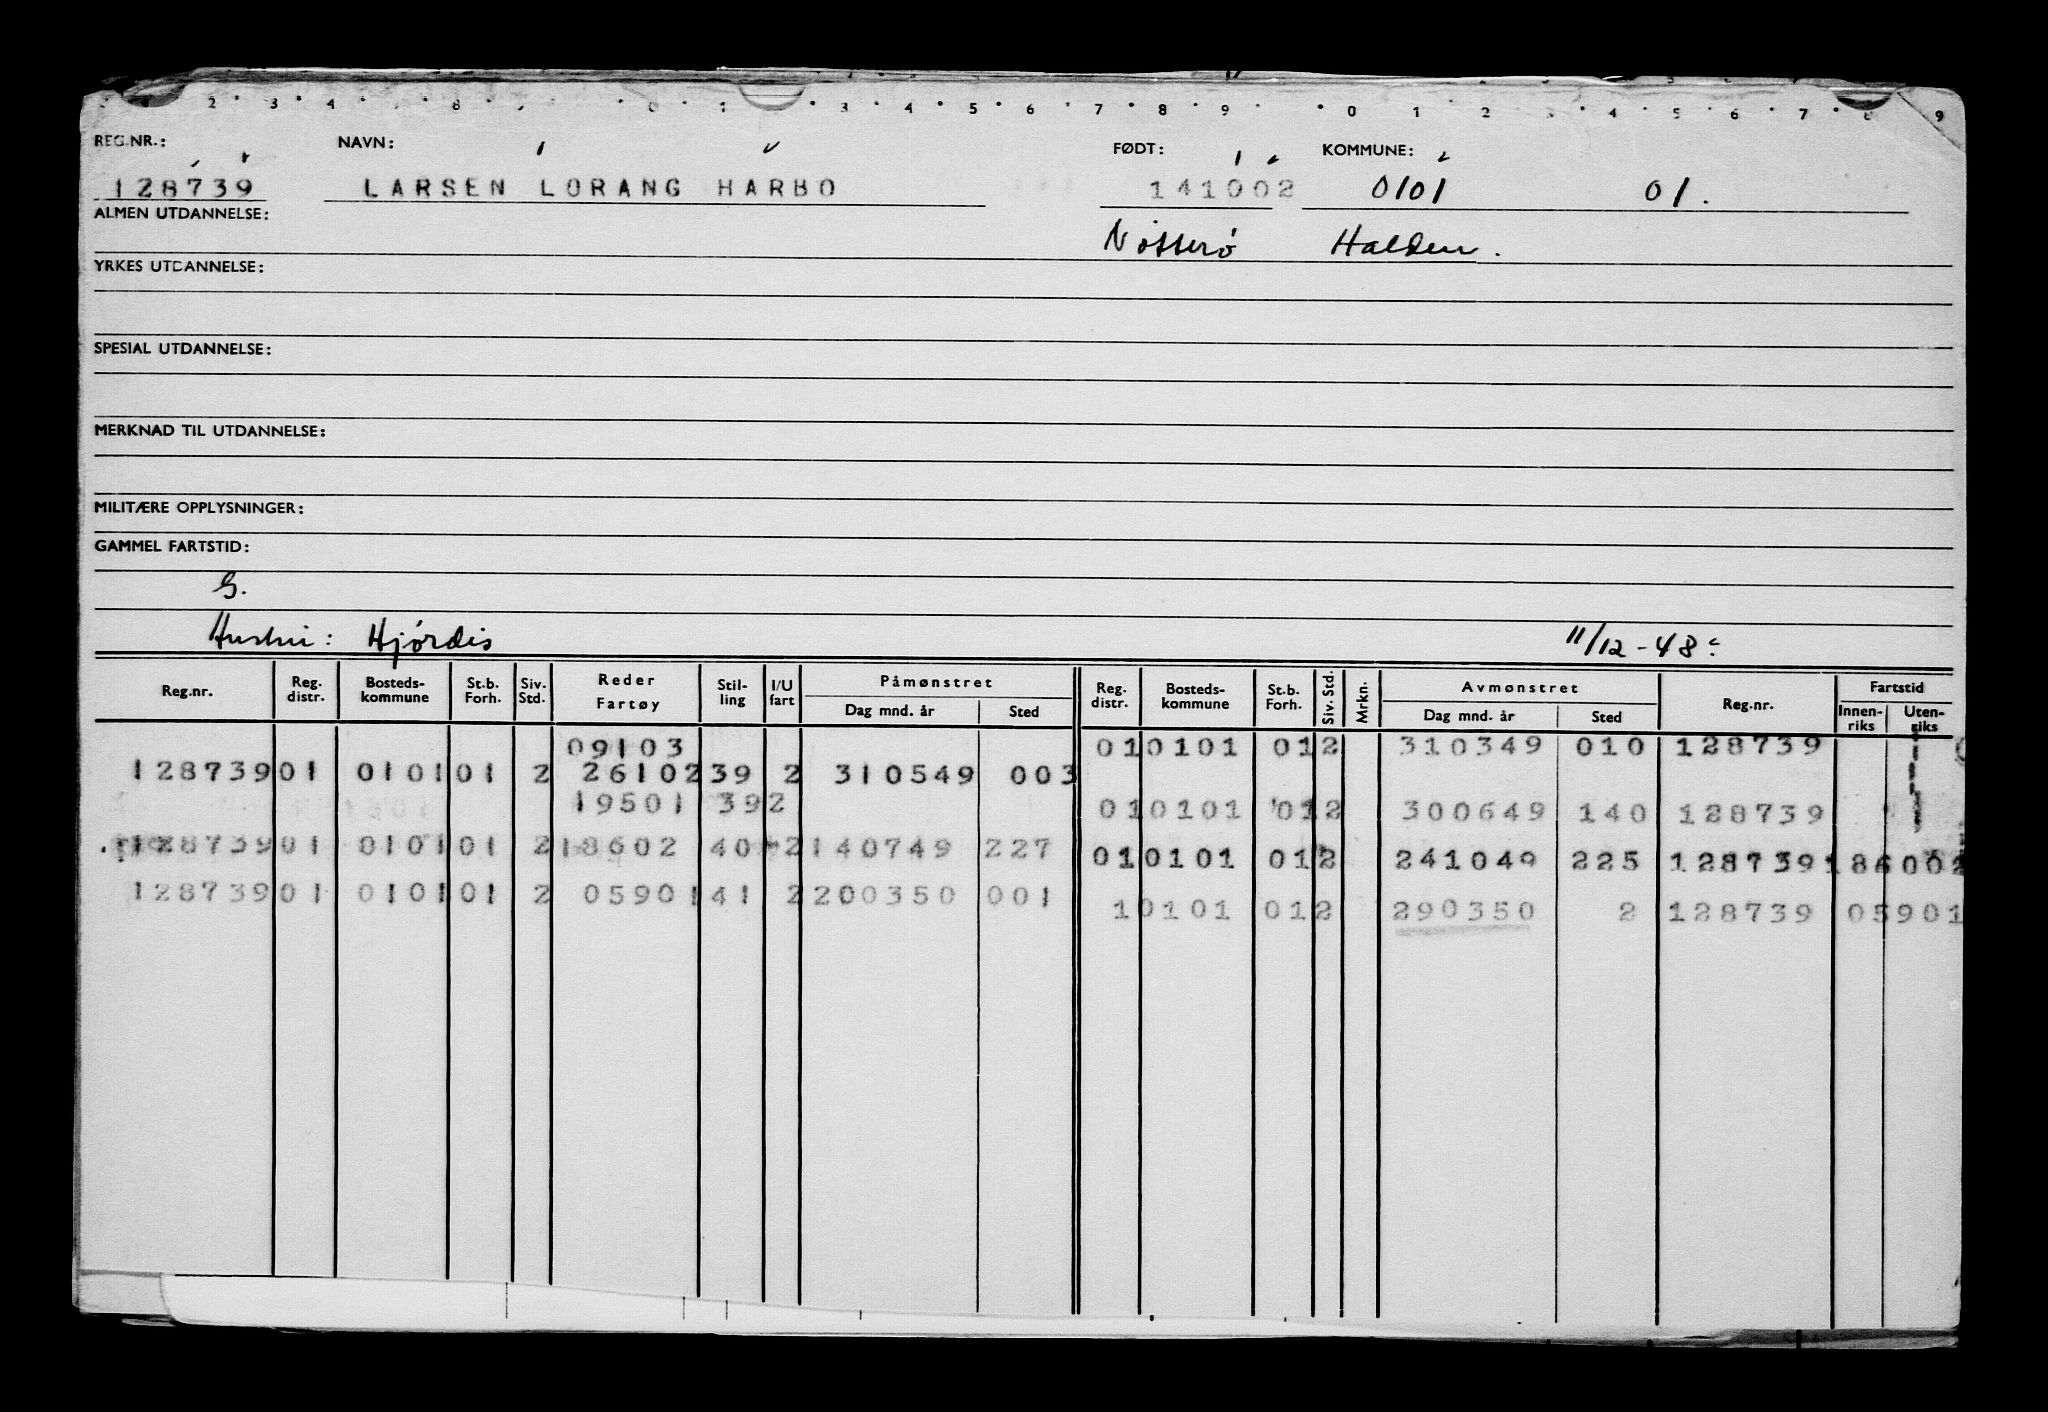 REG.NR.: NAVN: FØDT: KOMMUNE:
128739 LARSEN LORANG HARBO 141002 0101 01.
ALMEN UTDANNELSE: Nøtterö Halden.
YRKES UTDANNELSE:
SPESIAL UTDANNELSE:
MERKNAD TIL UTDANNELSE:
MILITÆRE OPPLYSNINGER:
GAMMEL FARTSTID:
G.
Hustru: Hjørdis 11/12-48
Reg.nr. Reg. distr. Bosteds-kommune St.b. Forh. Siv. Std. Reder Fartøy Stil-ling I/U fart Påmønstret Dag mnd. år Sted Reg. distr. Bosteds-kommune St.b. Forh. Siv. Std. Mrkn. Avmønstret Dag mnd. år Sted Reg.nr. Fartstid Innen-riks Uten-riks
09103 01 0101 01 2 310349 010 128739
128739 01 0101 01 2 26102 39 2 310549 003
19501 39 2 01 0101 01 2 300649 140 128739
128739 01 0101 01 2 18602 40 2 140749 227
01 0101 01 2 241049 225 128739 18600
128739 01 0101 01 2 05901 41 2 200350 001
1 0101 01 2 290350 2 128739 05901